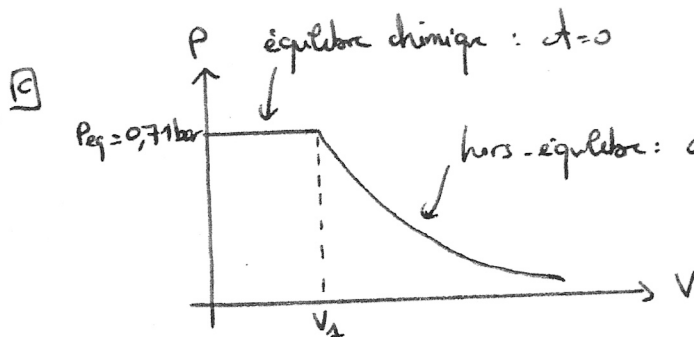 P équilibre chimique : A=0
C
Peq = 0,71 bar
hors-équilibre :
V
V1